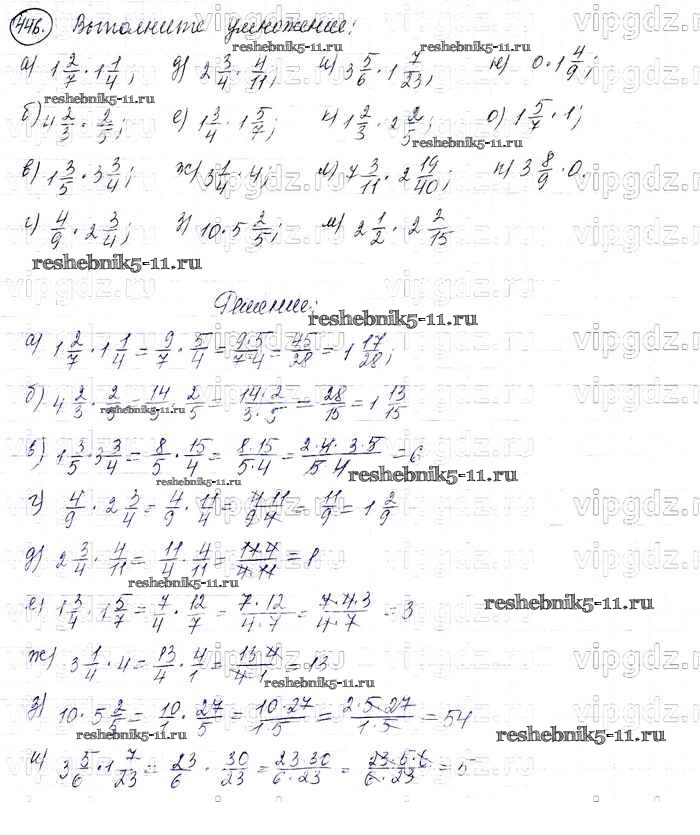 446. Выполните умножение:
а) 1 2/7 · 1 1/4; д) 2 3/4 · 4/11; и) 3 5/6 · 1 7/23; н) 0 · 1 4/9;
б) 4 2/3 · 2/5; е) 1 3/4 · 1 5/7; к) 1 2/3 · 2 2/5; о) 1 5/7 · 1;
в) 1 3/5 · 3 3/4; ж) 3 1/4 · 4; л) 7 3/11 · 2 19/40; п) 3 8/9 · 0.
г) 4/9 · 2 3/4; з) 10 · 5 2/5; м) 2 1/2 · 2 2/15
Решение:
а) 1 2/7 · 1 1/4 = 9/7 · 5/4 = 9·5/7·4 = 45/28 = 1 17/28;
б) 4 2/3 · 2/5 = 14/3 · 2/5 = 14·2/3·5 = 28/15 = 1 13/15
в) 1 3/5 · 3 3/4 = 8/5 · 15/4 = 8·15/5·4 = 2·4·3·5/5·4 = 6
г) 4/9 · 2 3/4 = 4/9 · 11/4 = 4·11/9·4 = 11/9 = 1 2/9
д) 2 3/4 · 4/11 = 11/4 · 4/11 = 11·4/4·11 = 1
е) 1 3/4 · 1 5/7 = 7/4 · 12/7 = 7·12/4·7 = 7·4·3/4·7 = 3
ж) 3 1/4 · 4 = 13/4 · 4/1 = 13·4/4·1 = 13
з) 10 · 5 2/5 = 10/1 · 27/5 = 10·27/1·5 = 2·5·27/1·5 = 54
и) 3 5/6 · 1 7/23 = 23/6 · 30/23 = 23·30/6·23 = 23·5·6/6·23 = 5
reshebnik5-11.ru
vipgdz.ru